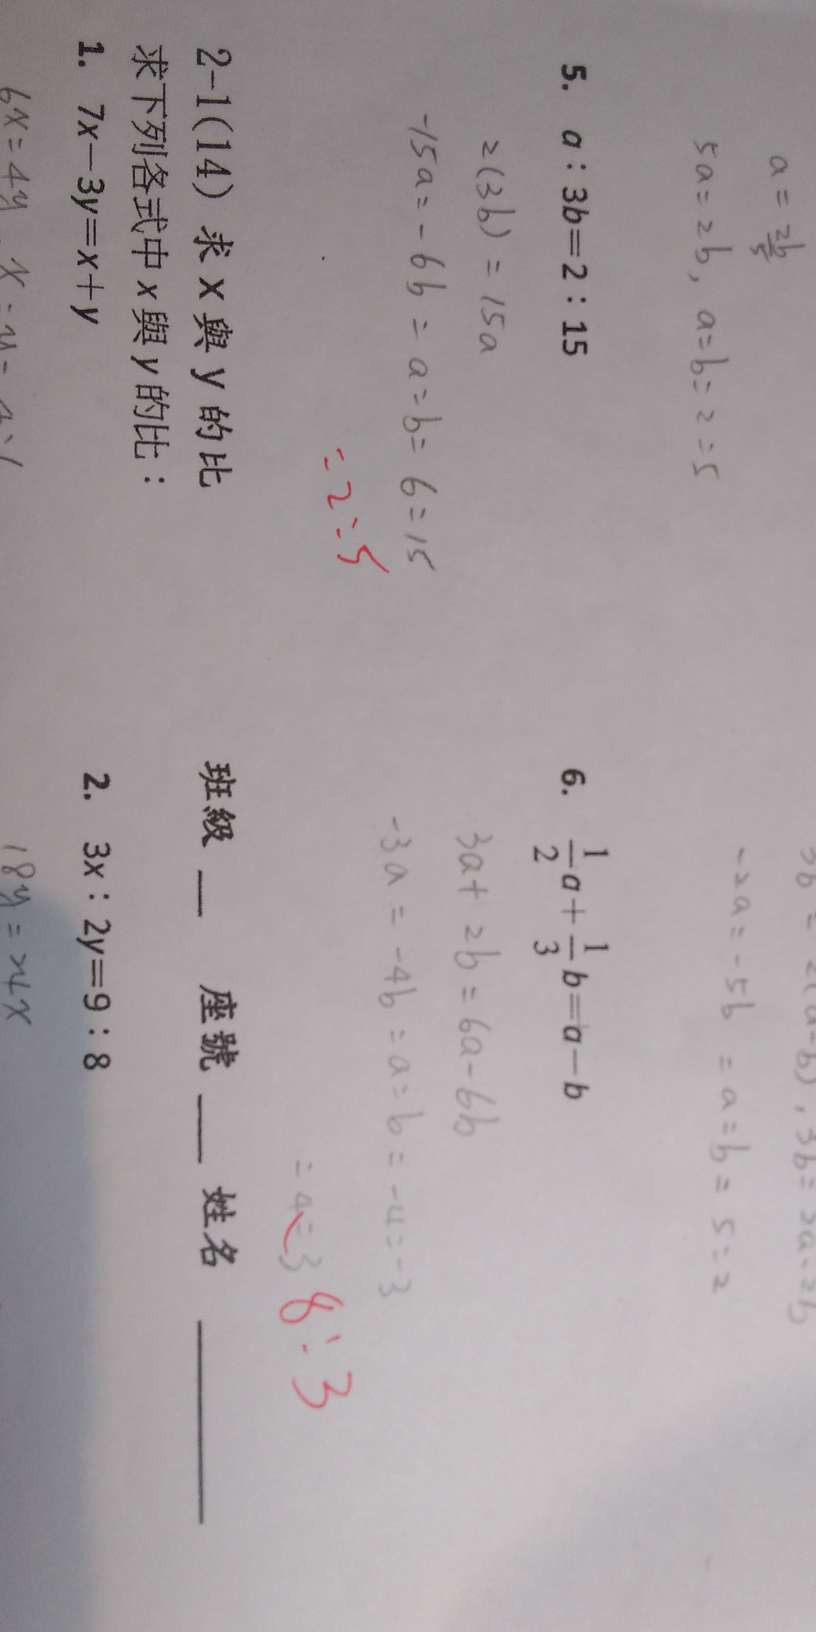 a = 2b/5
5a = 2b, a = b = 2 = 5
-2a = -5b = a = b = 5 = 2
5. a : 3b = 2 : 15
2(3b) = 15a
-15a = -6b = a = b = 6 = 15
= 2 : 5
6. 1/2 a + 1/3 b = a - b
3a + 2b = 6a - 6b
-3a = -4b = a = b = -4 = -3
= 4 = 3 8 : 3
2-1(14) 求 x 與 y 的比 班級 __ 座號 ___ 姓名 ________
求下列各式中 x 與 y 的比：
1. 7x－3y＝x＋y
6x = 4y
2. 3x : 2y＝9 : 8
18y = 24x